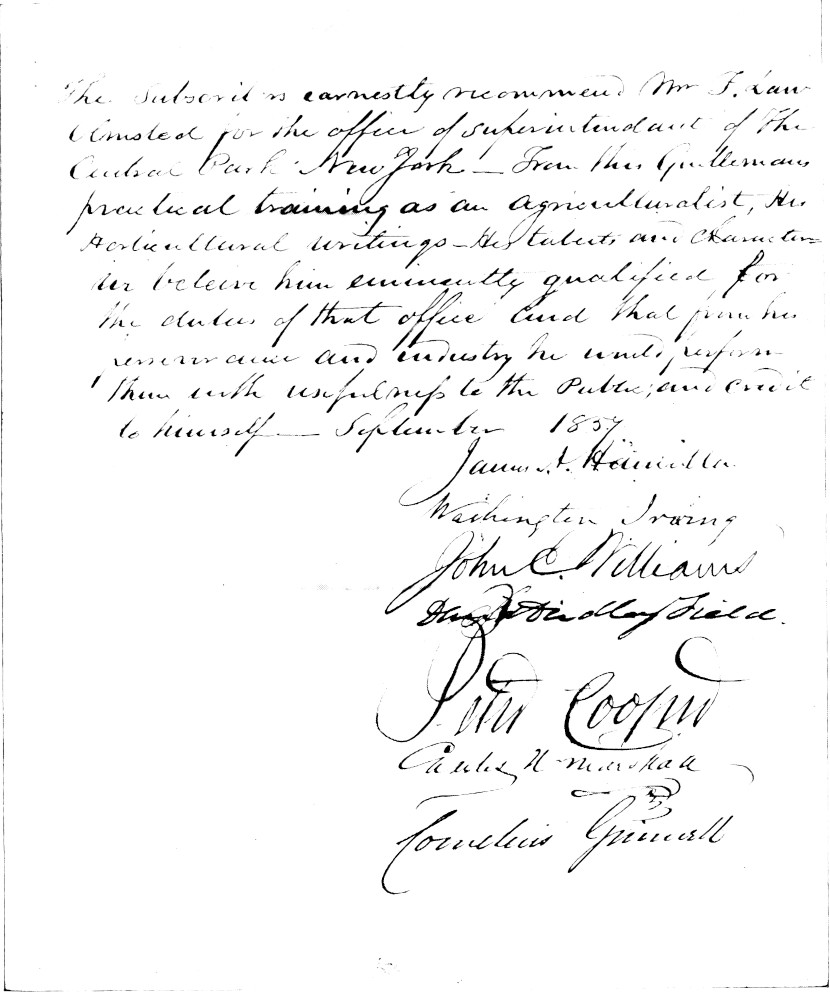 The Subscribers earnestly recommend Mr F. Law
Olmsted for the office of superintendant of The
Central Park New York — From this Gentlemans
practical training as an agriculturalist, His
Horticultural writings — His talents and character
we beleive him eminently qualified for
the duties of that office and that from his
perseverance and industry he would perform
them with usefulness to the Public, and credit
to himself — September 1857
James A. Hamilton
Washington Irving
John C. Williams
David Dudley Field.
Peter Cooper
Charles H Marshall
Cornelius Grinnell